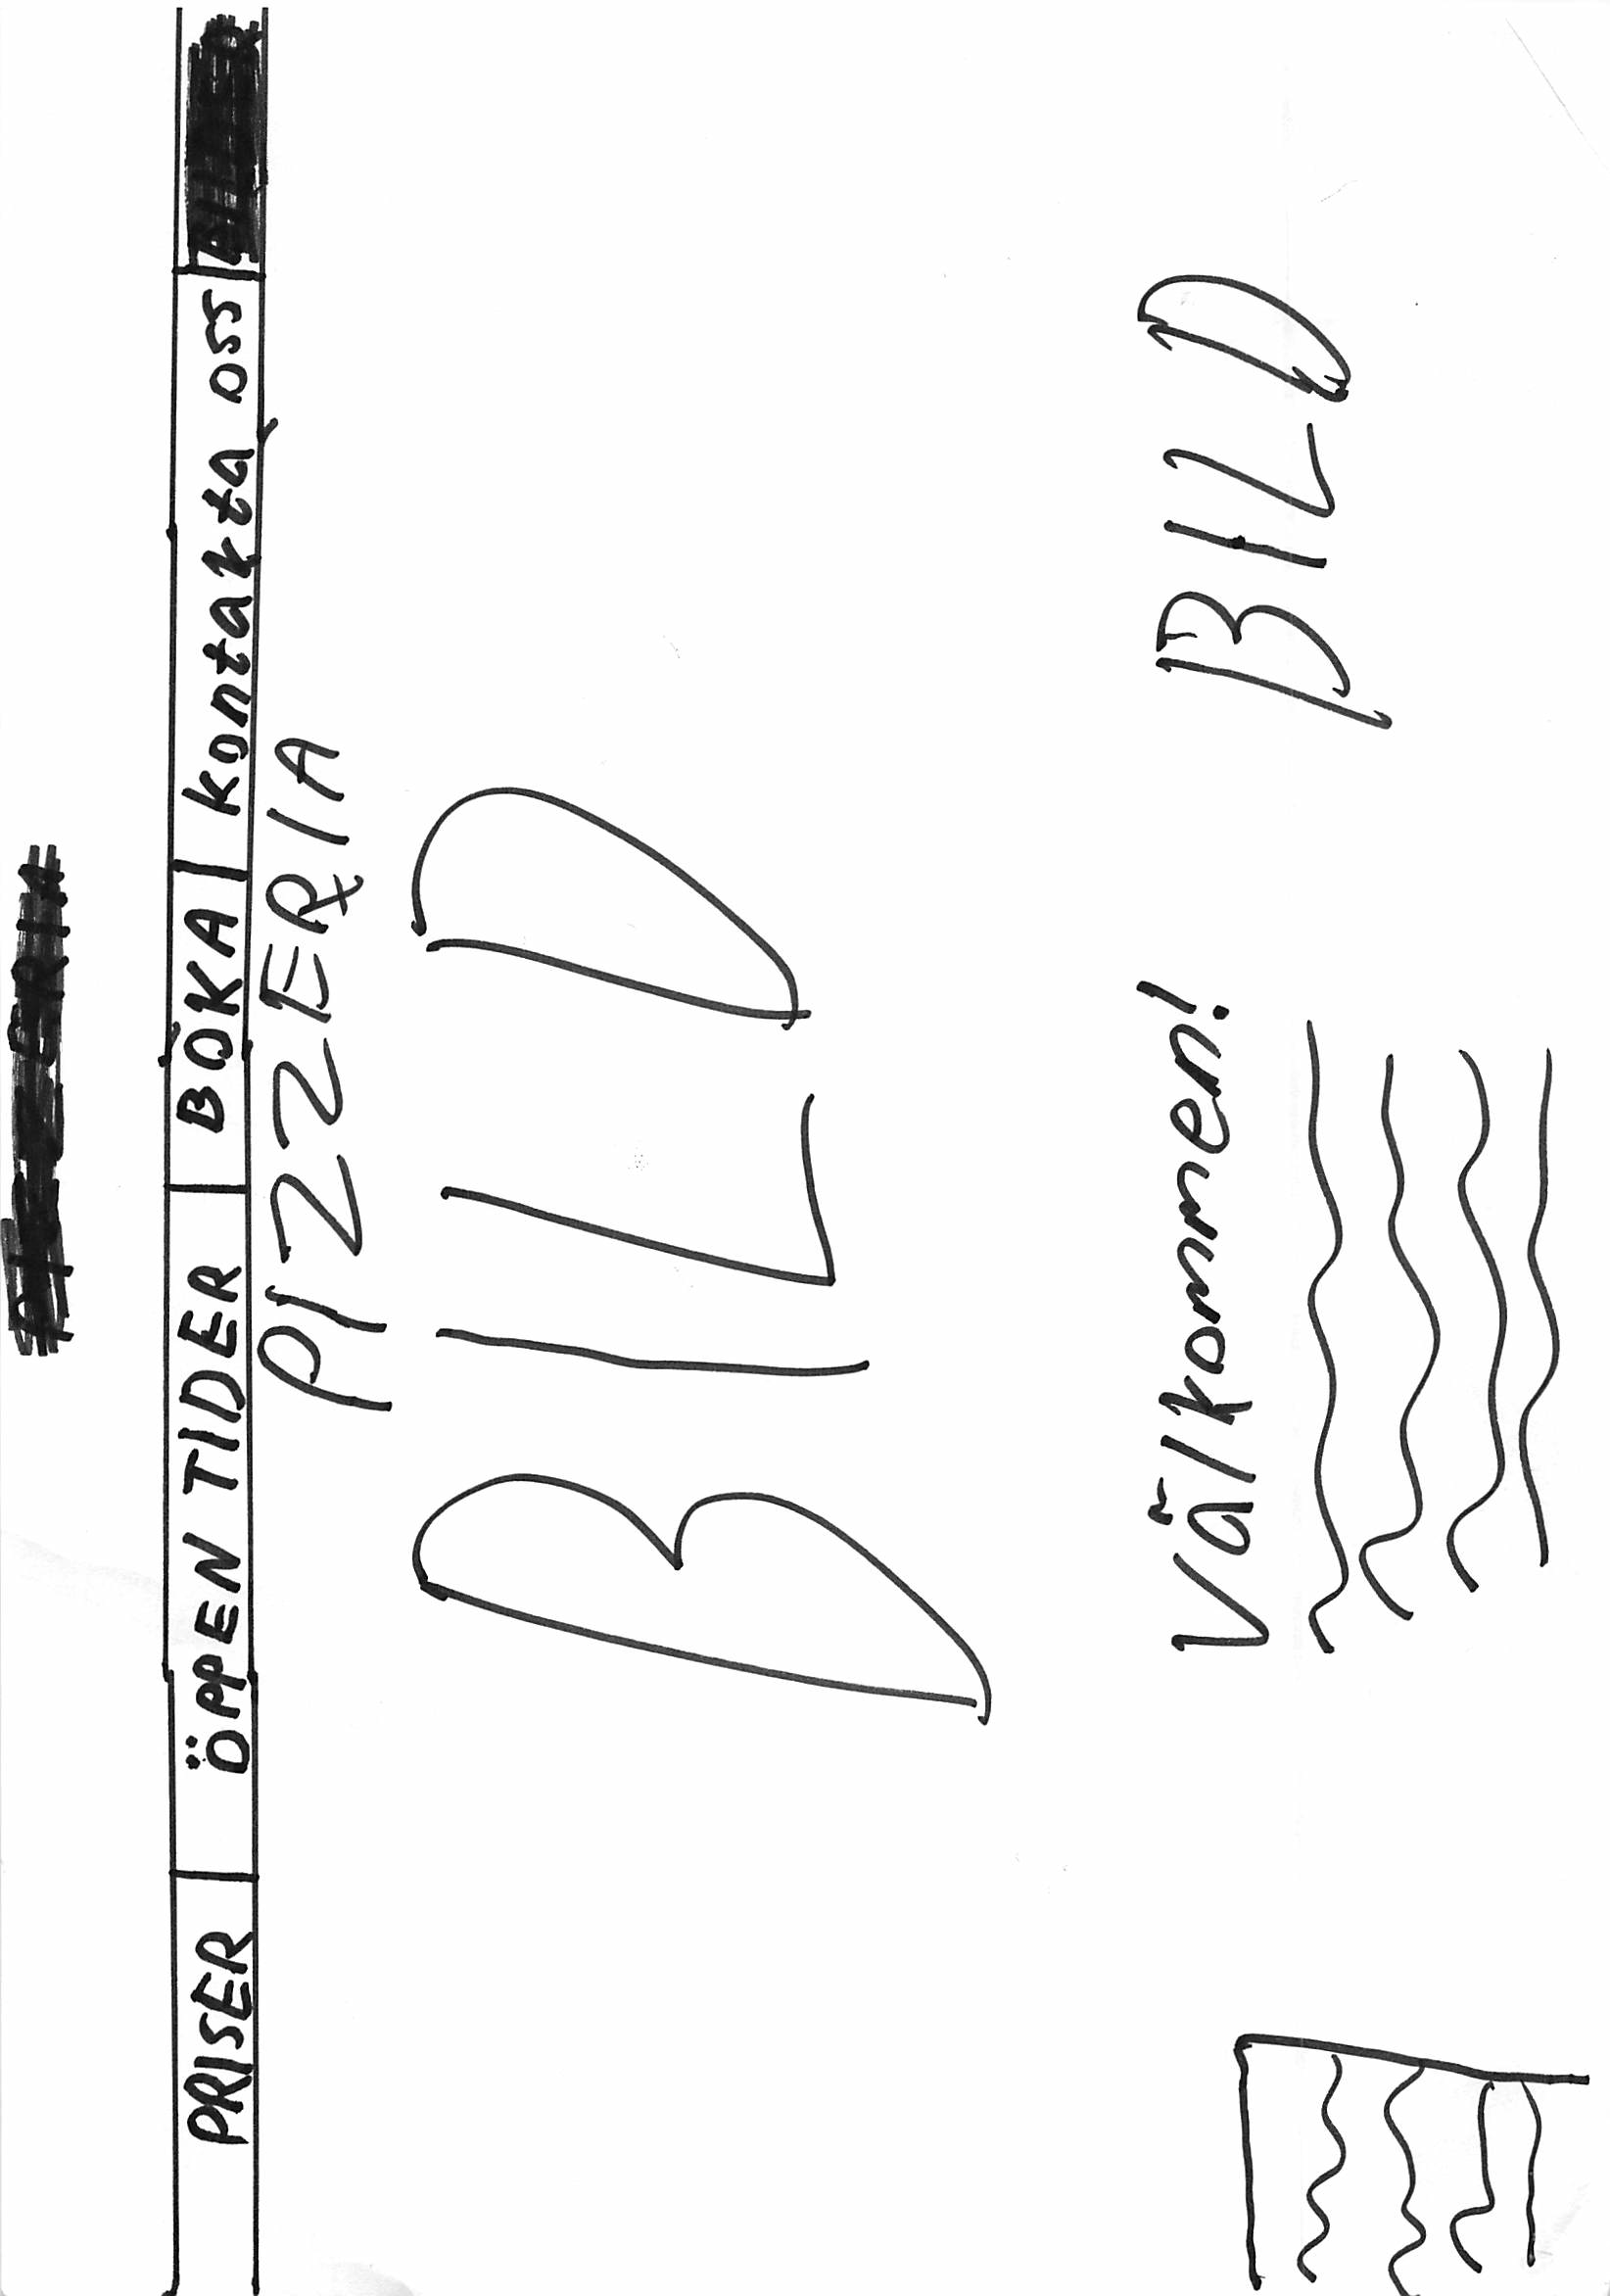 PRISER ÖPPEN TIDER BOKA kontakta oss
PIZZERIA
BILD
Välkommen!
BILD